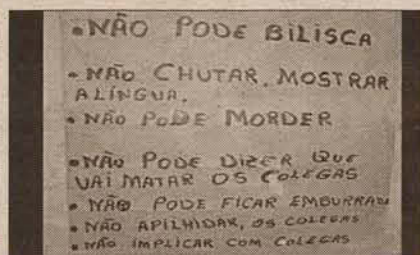 • NÃO PODE BILISCA
• NÃO CHUTAR. MOSTRAR
ALÍNGUA.
• NÃO PODE MORDER
• NÃO PODE DIZER QUE
VAI MATAR OS COLEGAS
• NÃO PODE FICAR EMBURRADO
• NÃO APILHIDAR, OS COLEGAS
• NÃO IMPLICAR COM COLEGAS